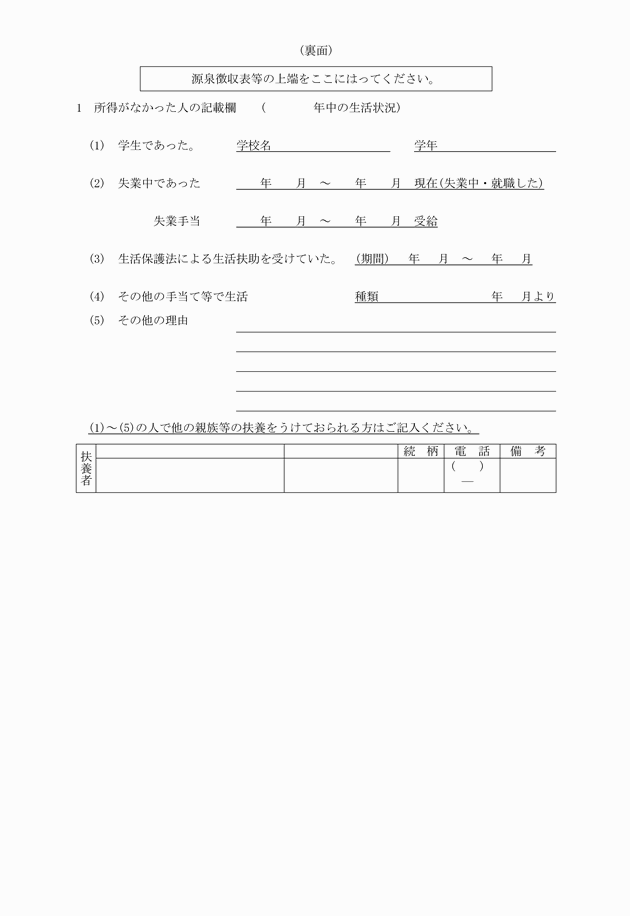 （裏面）
源泉徴収表等の上端をここにはってください。
1　所得がなかった人の記載欄　　（　　　　年中の生活状況）
(1)　学生であった。　　　学校名　　　　　　　　　　　　学年
(2)　失業中であった　　　年　　月　～　　年　　月　現在(失業中・就職した)
失業手当　　　年　　月　～　　年　　月　受給
(3)　生活保護法による生活扶助を受けていた。　（期間）　年　月　～　年　月
(4)　その他の手当て等で生活　　　　種類　　　　　　　　　年　月より
(5)　その他の理由
(1)～(5)の人で他の親族等の扶養をうけておられる方はご記入ください。
扶養者　　続　柄　　電　話　　備　考
(　　)
―